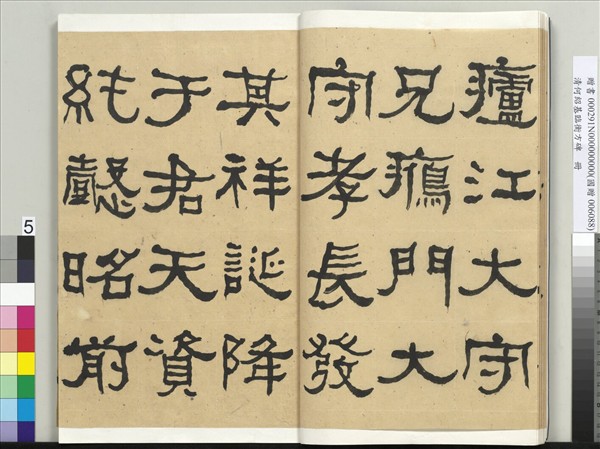 廬江大守
兄鴈門大
守孝長發
其祥誕降
于君天資
純懿昭前
贈書 000291N000000000(國贈 006088)
清何紹基臨衡方碑 冊
5